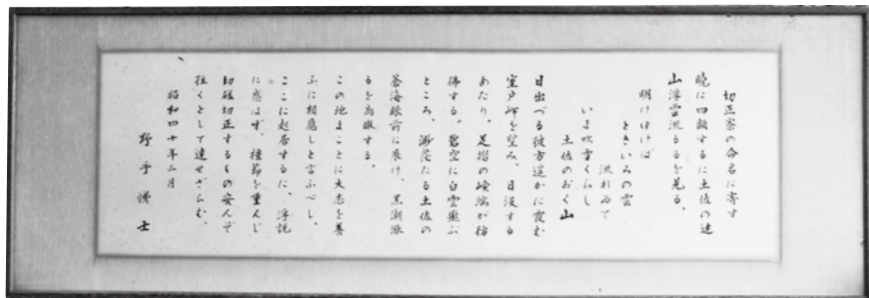 切正寮の命名に寄す
暁に四顧するに土佐の連
山浮雲流るるを見る。
明けゆけば
ときいろの雲
流れゐて
いま吹雪くらし
土佐のおく山
日出づる彼方遥かに霞む
室戸岬を望み、日没する
あたり、足摺の峻端が彷
彿する。碧空に白雲遊ぶ
ところ、渺茫たる土佐の
蒼海眼前に展け、黒潮派
るを鳥瞰する。
この地まことに大志を養
ふに相應しと言ふべし。
ここに起居するに、浮説
に惑はず、禮節を重んじ
切磋切正するもの安んぞ
往くとして達せざらむ。
昭和四十年三月
野手悌士